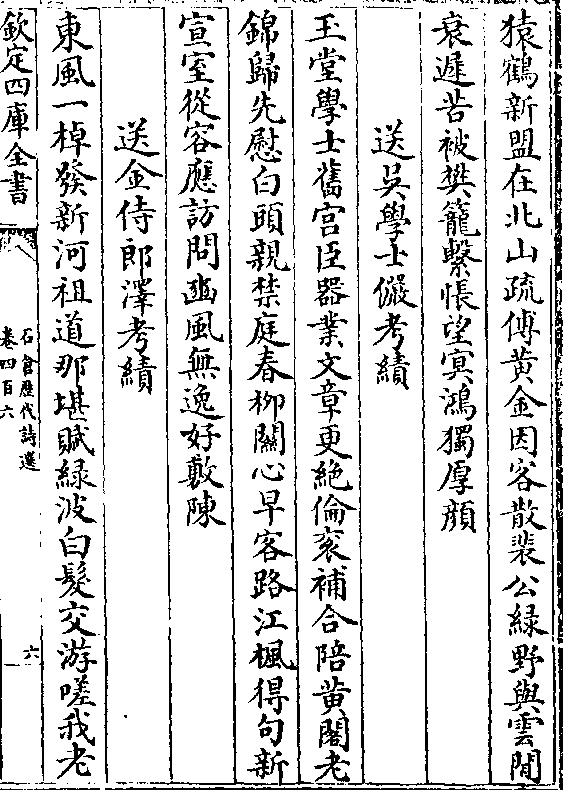 猿鶴新盟在北山疏傅黄金因客散裴公緑野與雲閒
衰遲苦被樊籠繫悵望冥鴻獨厚顔
送吳學士儼考績
玉堂學士舊宫臣器業文章更絶倫衮補合陪黄閣老
錦歸先慰白頭親禁庭春栁關心早客路江楓得句新
宣室從容應訪問豳風無逸好敷陳
送金侍郎澤考績
東風一棹發新河祖道那堪賦緑波白髮交游嗟我老
欽定四庫全書
石倉歴代詩選
卷四百六
六